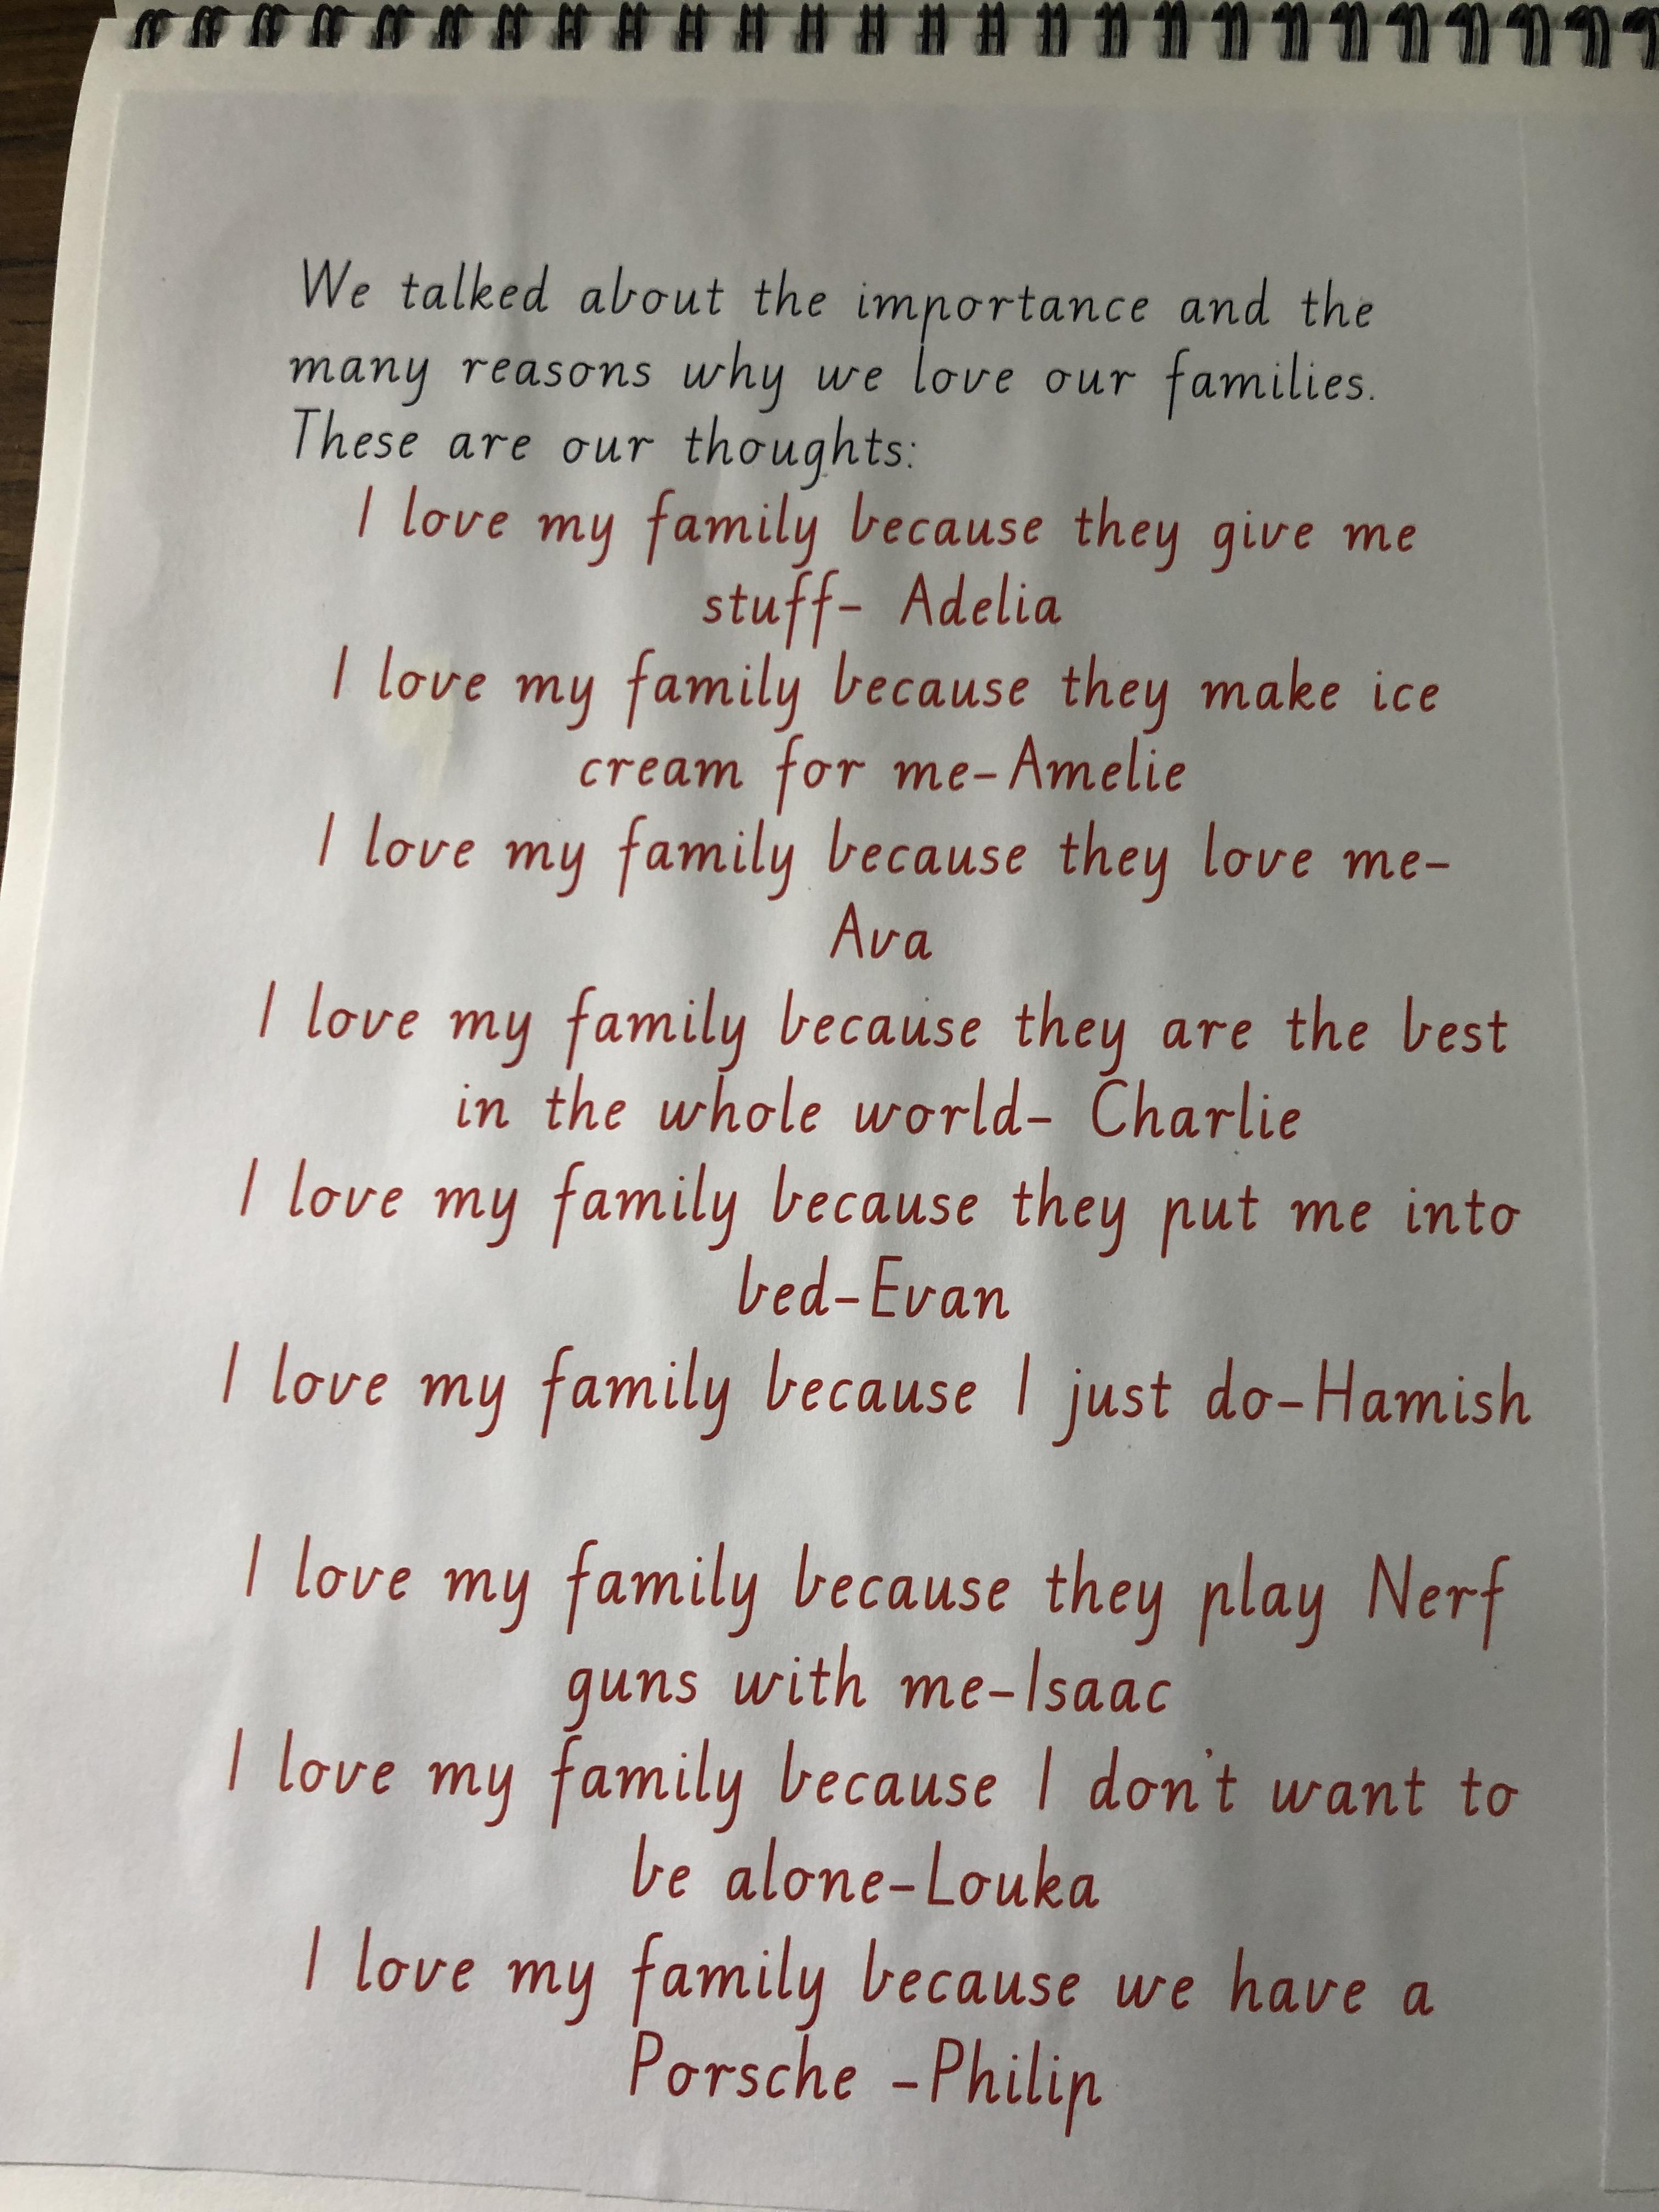 We talked about the importance and the
many reasons why we love our families.
These are our thoughts:
I love my family because they give me
stuff- Adelia
I love my family because they make ice
cream for me-Amelie
I love my family because they love me-
Ava
I love my family because they are the best
in the whole world- Charlie
I love my family because they put me into
bed-Evan
I love my family because I just do-Hamish
I love my family because they play Nerf
guns with me-Isaac
I love my family because I don't want to
be alone-Louka
I love my family because we have a
Porsche -Philip